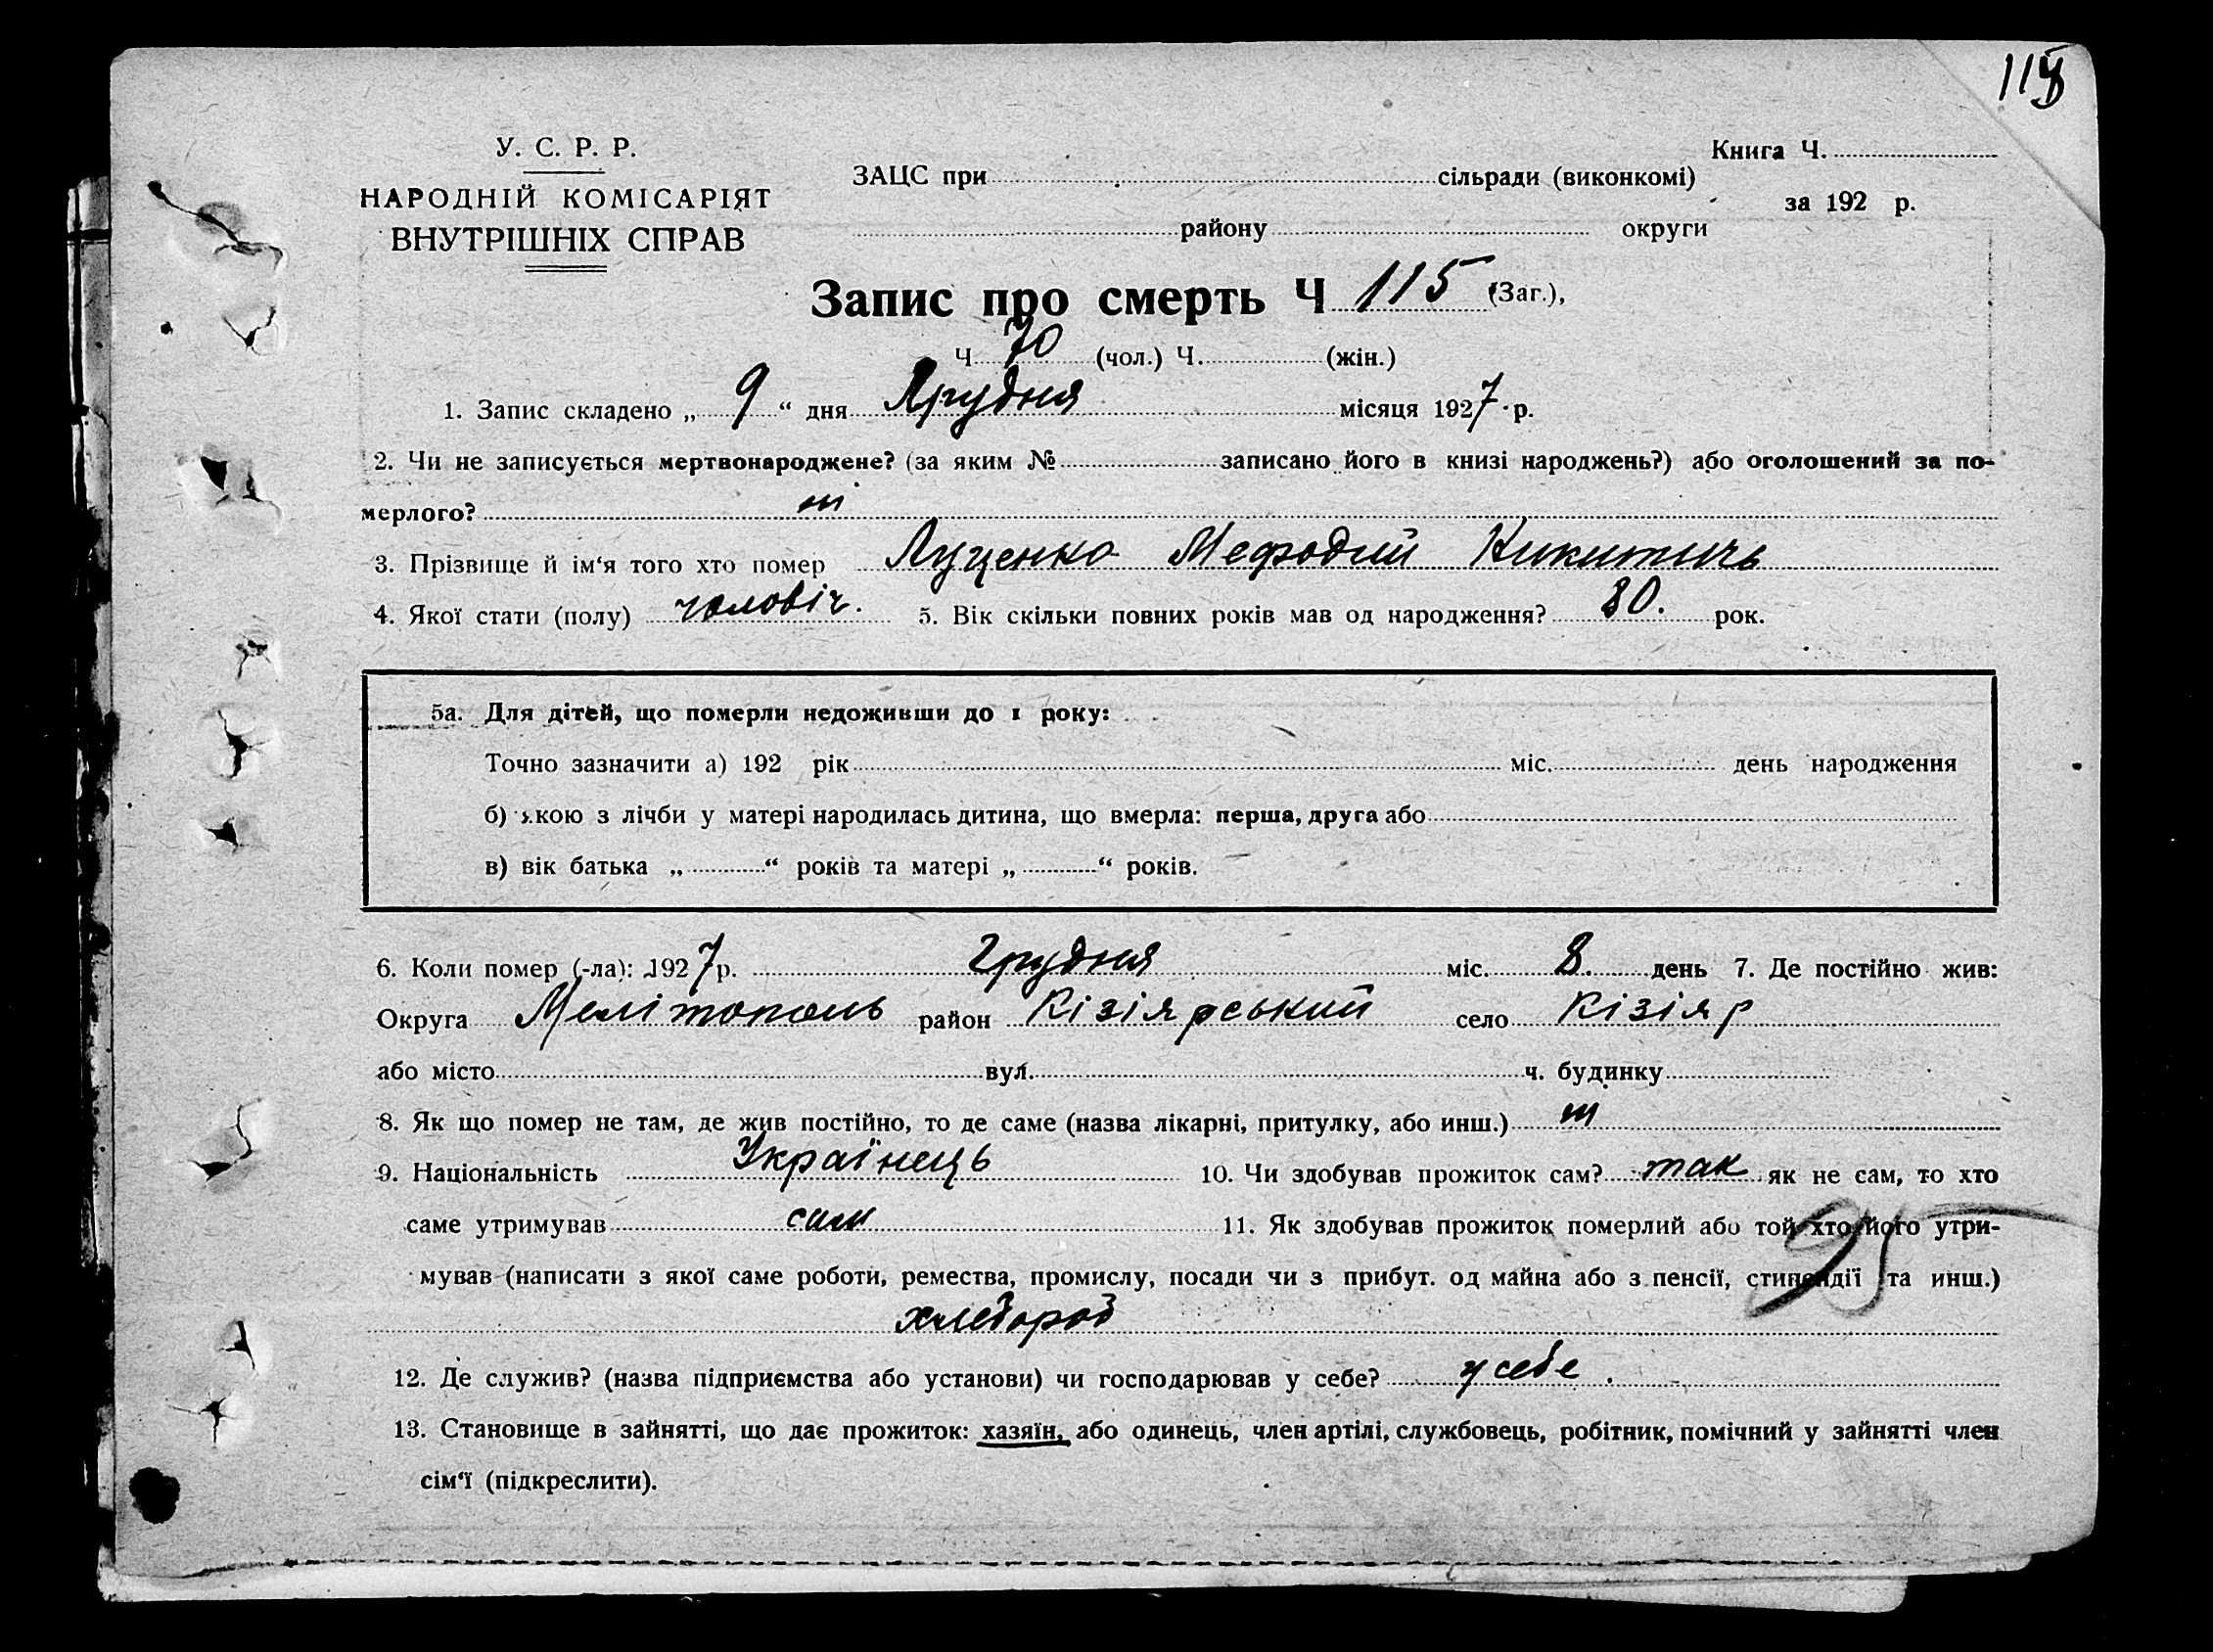 115
У. С. Р. Р.
НАРОДНІЙ КОМІСАРІЯТ
ВНУТРІШНІХ СПРАВ
ЗАЦС при сільради (виконкомі)
району округи
Книга Ч.
за 192 р.
Запис про смерть Ч 115 (Заг.),
Ч 70 (чол.) Ч. (жін.)
1. Запис складено „ 9 “ дня Грудня місяця 1927 р.
2. Чи не записується мертвонароджене? (за яким № записано його в книзі народжень?) або оголошений за по-
мерлого? ні
3. Прізвище й ім‘я того хто помер Луценко Мефодий Никитичь
4. Якої стати (полу) чоловіч. 5. Вік скільки повних років мав од народження? 80. рок.
5а. Для дітей, що померли недоживши до 1 року:
Точно зазначити а) 192 рік міс. день народження
б) якою з лічби у матері народилась дитина, що вмерла: перша, друга або
в) вік батька „ “ років та матері „ “ років.
6. Коли помер (-ла): 1927 р. Грудня міс. 8. день 7. Де постійно жив:
Округа Мелітополь район Кізіярський село Кізіяр
або місто вул. ч. будинку
8. Як що помер не там, де жив постійно, то де саме (назва лікарні, притулку, або инш.) ні
9. Національність Українець 10. Чи здобував прожиток сам? так як не сам, то хто
саме утримував сам 11. Як здобував прожиток померлий або той хто його утри-
мував (написати з якої саме роботи, ремества, промислу, посади чи з прибут. од майна або з пенсії, стипендії та инш.)
хлебороб
12. Де служив? (назва підприємства або установи) чи господарював у себе? у себе.
13. Становище в зайнятті, що дає прожиток: хазяїн, або одинець, член артілі, службовець, робітник, помічний у зайнятті член
сім‘ї (підкреслити).